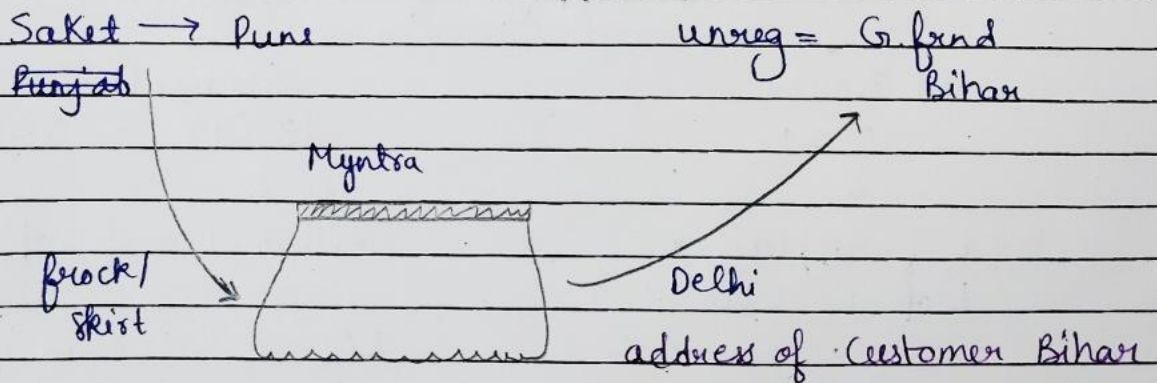 Saket → Pune
unreg = G. frnd
Punjab
Bihar
Myntra
frock/
skirt
Delhi
address of Customer Bihar